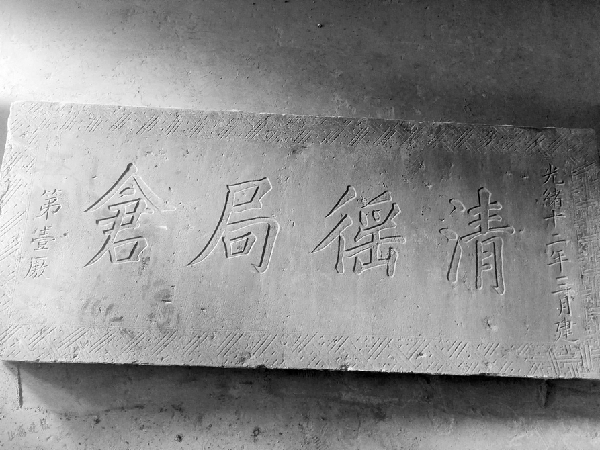 光緒十二年三月建
清徭局倉
第壹廒